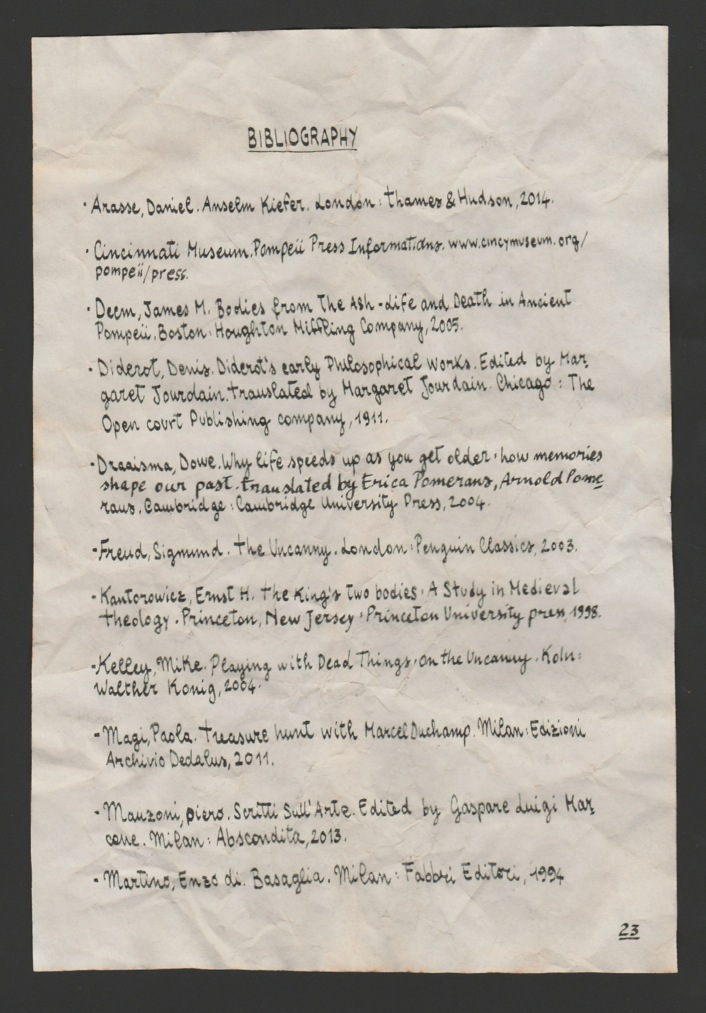 BIBLIOGRAPHY
· Arasse, Daniel. Anselm Kiefer. London: Thames & Hudson, 2014.
· Cincinnati Museum. Pompeii Press Informations. www.cincymuseum.org/
pompeii/press.
· Deem, James M. Bodies from The Ash - Life and Death in Ancient
Pompeii. Boston: Houghton Miffling Company, 2005.
· Diderot, Denis. Diderot's early Philosophical Works. Edited by Mar-
garet Jourdain. translated by Margaret Jourdain. Chicago: The
Open court Publishing company, 1911.
· Draaisma, Dowe. Why life speeds up as you get older: how memories
shape our past. translated by Erica Pomerans, Arnold Pome-
rans. Cambridge: Cambridge University Press, 2004.
- Freud, Sigmund. The Uncanny. London: Penguin Classics, 2003.
- Kantorowicz, Ernst H. The King's two bodies: A Study in Medieval
theology. Princeton, New Jersey: Princeton University press, 1998.
- Kelley, Mike. Playing with Dead Things: on the Uncanny. Koln:
Walther Konig, 2004.
- Magi, Paola. treasure hunt with Marcel Duchamp. Milan: Edizioni
Archivio Dedalus, 2011.
- Manzoni, piero. Scritti Sull'Arte. Edited by Gaspare Luigi Mar-
cone. Milan: Abscondita, 2013.
- Martino, Enzo di. Basaglia. Milan: Fabbri Editori, 1994
23